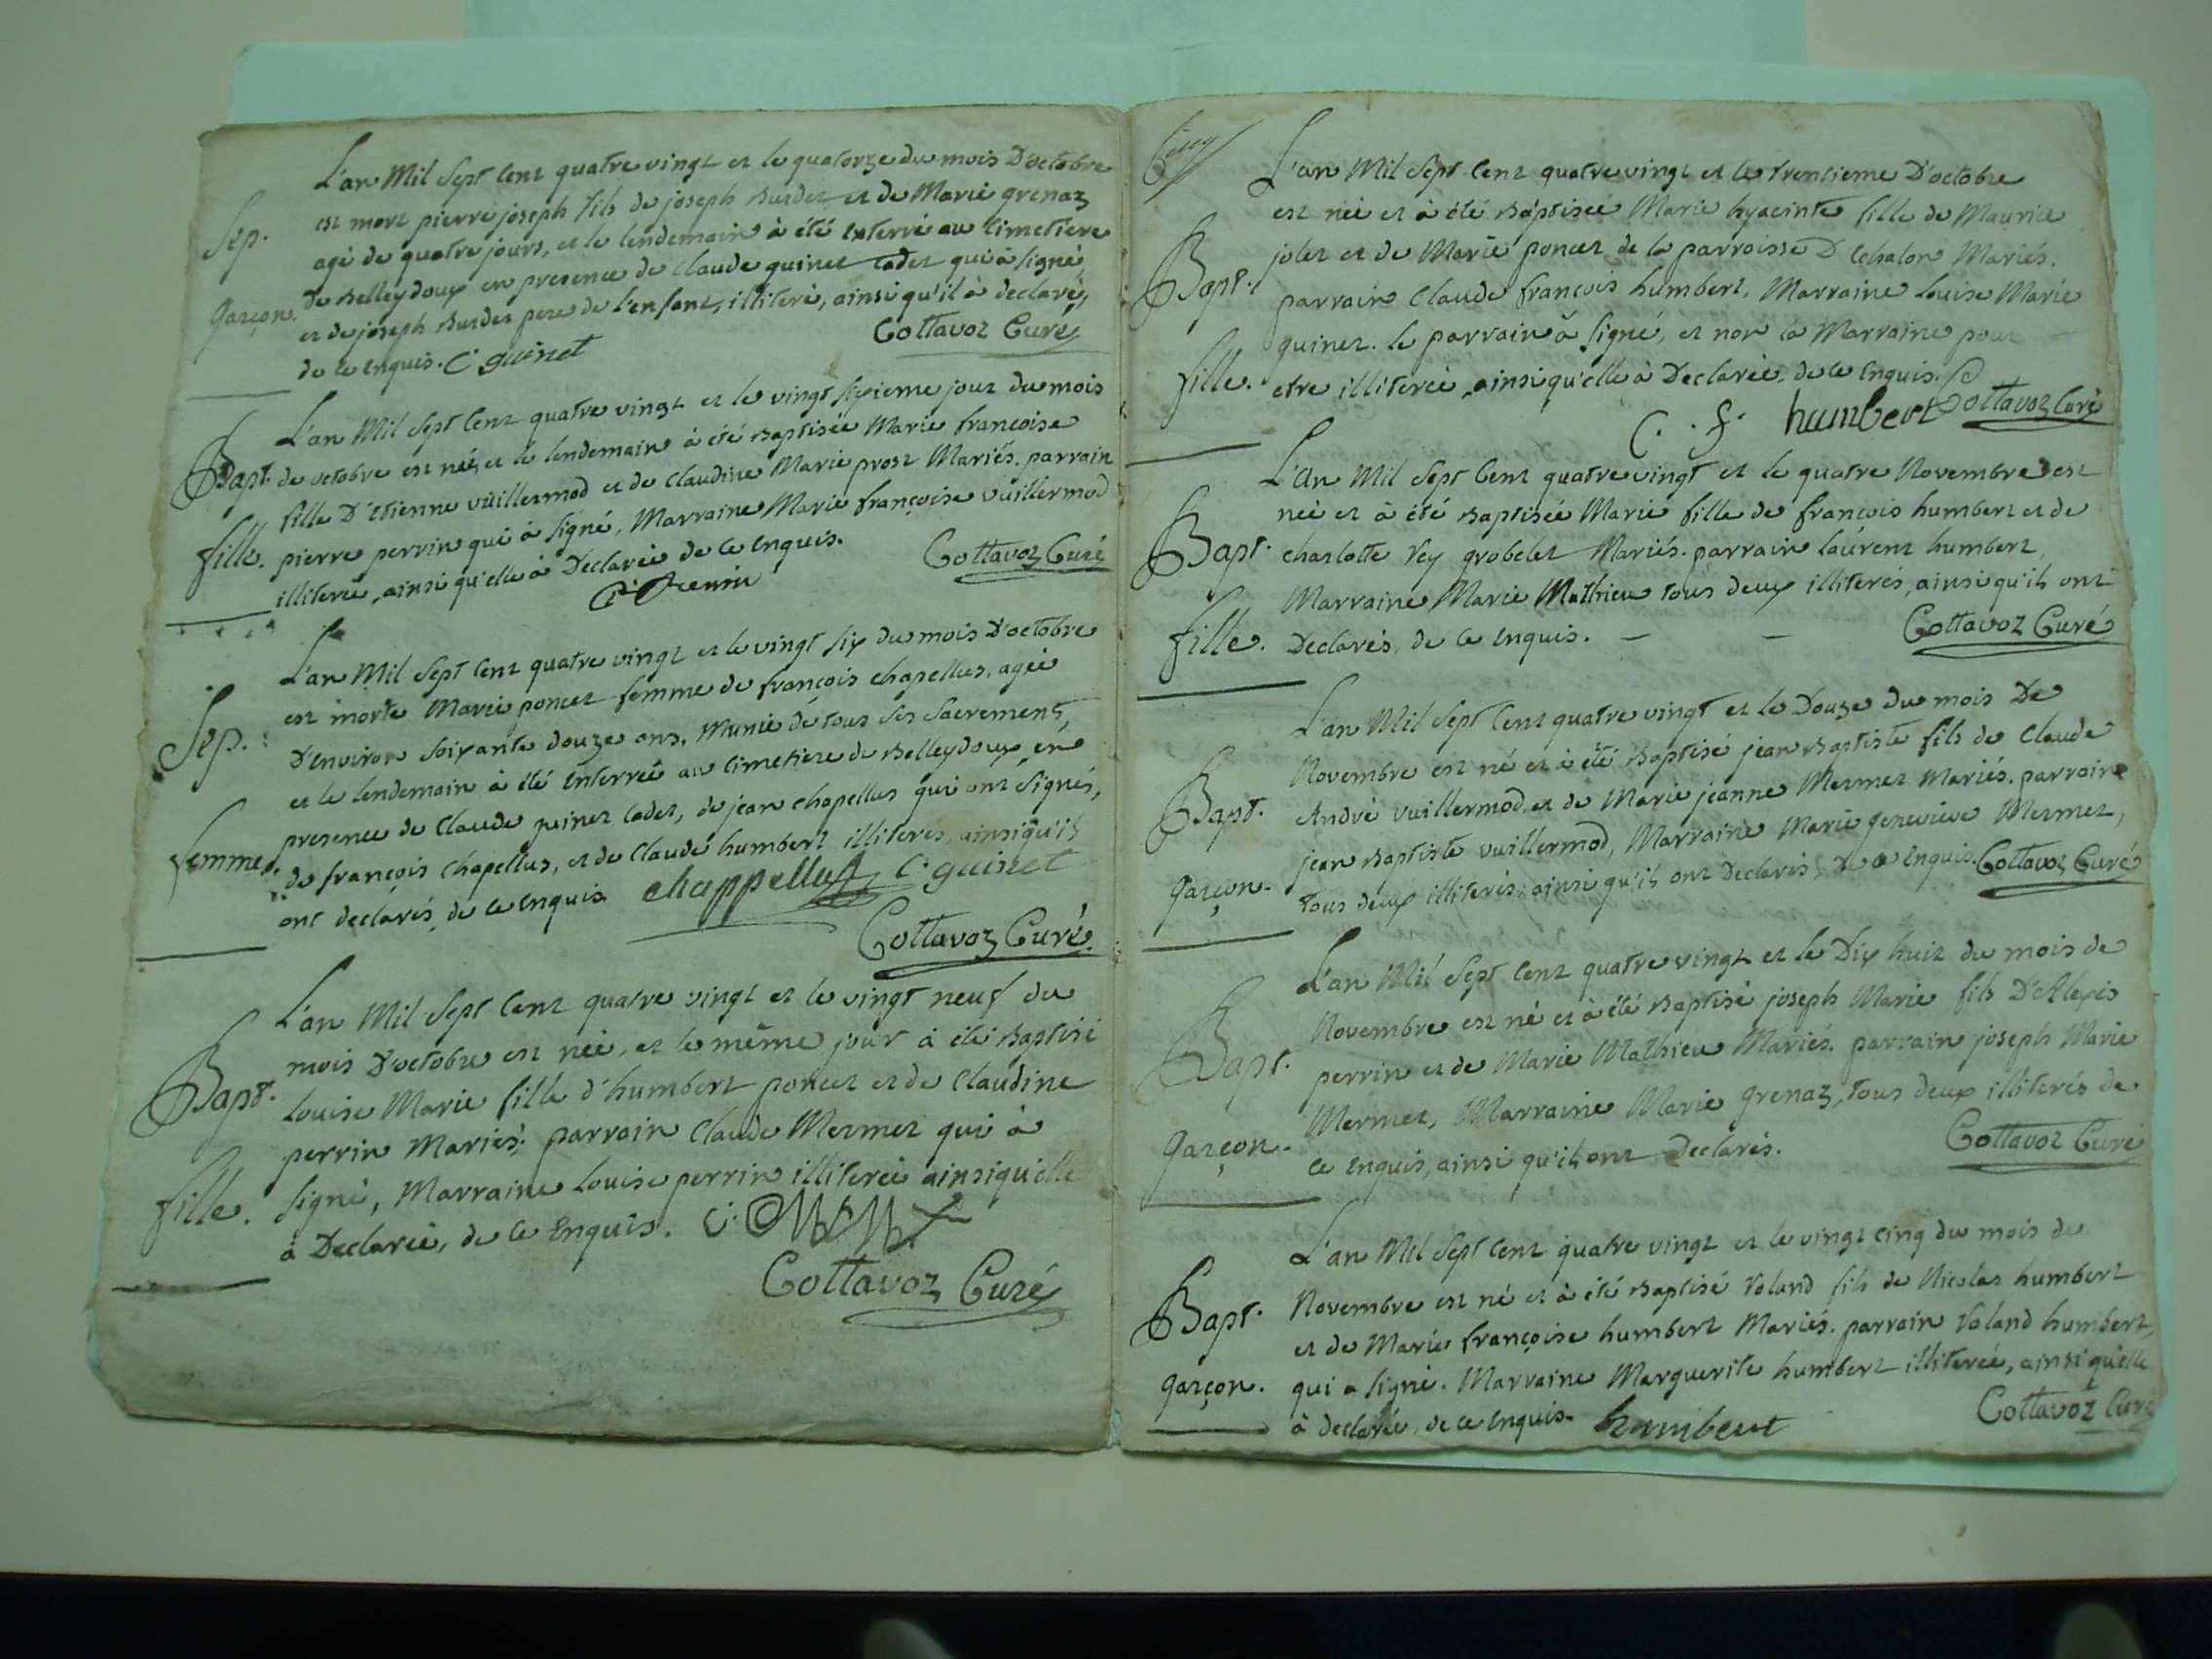 L'an Mil Sept Cent quatre vingt et le quatorze du mois D'octobre
Sep. est mort pierre joseph fils de joseph Burdet et de Marie grenaz
agé de quatre jours, et le lendemain à été enterré au Cimetiere
garçon. de Belleydoux en presence de Claude guinet cadet qui à signé,
et de joseph Burdet pere de l'enfant, illiteré, ainsi qu'il à declaré,
de ce enquis. C. guinet Cottavoz Curé
L'an Mil Sept Cent quatre vingt et le vingt sixieme jour du mois
Bapt. de octobre est née, et le lendemain à été Baptisée Marie françoise
fille D'etienne vuillermod et de Claudine Marie prost Mariés. parrain
fille. pierre perrin qui à signé, Marraine Marie françoise vuillermod
illiterée, ainsi qu'elle à Declarée de ce enquis. Cottavoz Curé
L'an Mil Sept Cent quatre vingt et le vingt six du mois D'octobre
est morte Marie poncet femme de françois chapellus, agée
Sep. D'environ soixante douze ans, Munie de tous ses Sacrements,
et le lendemain à été enterrée au Cimetiere de Belleydoux, en
presence de Claude guinet Cadet, de jean chapellus qui ont signés,
femme. de françois chapellus, et de Claude humbert illiterés, ainsi qu'ils
ont declarés, de ce enquis chappellus C. guinet
Cottavoz Curé.
L'an Mil Sept Cent quatre vingt et le vingt neuf du
mois D'octobre est née, et le même jour à été Baptisé
Bapt. Louise Marie fille d'humbert poncet et de Claudine
perrin Mariés; parrain Claude Mermet qui à
fille. signé, Marraine Louise perrin illiterée ainsi qu'elle
à Declarée, de ce Enquis.
Cottavoz Curé
L'an Mil Sept Cent quatre vingt et le trentieme D'octobre
est née et à été Baptisée Marie hyacinte fille de Maurice
Bapt. jolet et de Marie poncet de la parroisse D'echalon Mariés.
parrain Claude françois humbert, Marraine Louise Marie
guinet. le parrain à signé, et non la Marraine pour
fille. etre illiterée, ainsi qu'elle à Declarée, de ce Enquis.
C. f. humbert Cottavoz Curé
L'An Mil Sept Cent quatre vingt et le quatre Novembre est
née et à été Baptisée Marie fille de françois humbert et de
Bapt. charlotte Rey grobelet Mariés. parrain Laurent humbert,
Marraine Marie Mathieu tous deux illiterés, ainsi qu'ils ont
fille. Declarés, de ce Enquis. — — Cottavoz Curé
L'an Mil Sept Cent quatre vingt et le Douze du mois De
Novembre est né et à été Baptisé jean Baptiste fils de Claude
Bapt. André vuillermod, et de Marie jeanne Mermet Mariés. parrain
jean Baptiste vuillermod, Marraine Marie genevieve Mermet,
garçon. tous deux illiterés, ainsi qu'ils ont Declarés, De ce Enquis. Cottavoz Curé
L'an Mil Sept Cent quatre vingt et le Dix huit du mois de
Novembre est né et à été Baptisé joseph Marie fils D'Alexis
Bapt. perrin et de Marie Mathieu Mariés. parrain joseph Marie
Mermet, Marraine Marie grenaz, tous deux illiterés de
garçon. ce enquis, ainsi qu'ils ont Declarés. Cottavoz Curé
L'an Mil Sept Cent quatre vingt et le vingt cinq du mois de
Bapt. Novembre est né et à été Baptisé Roland fils de Nicolas humbert
et de Marie françoise humbert Mariés. parrain Roland humbert,
garçon. qui a signé. Marraine Marguerite humbert illiterée, ainsi qu'elle
à declarée, de ce Enquis. humbert Cottavoz Curé